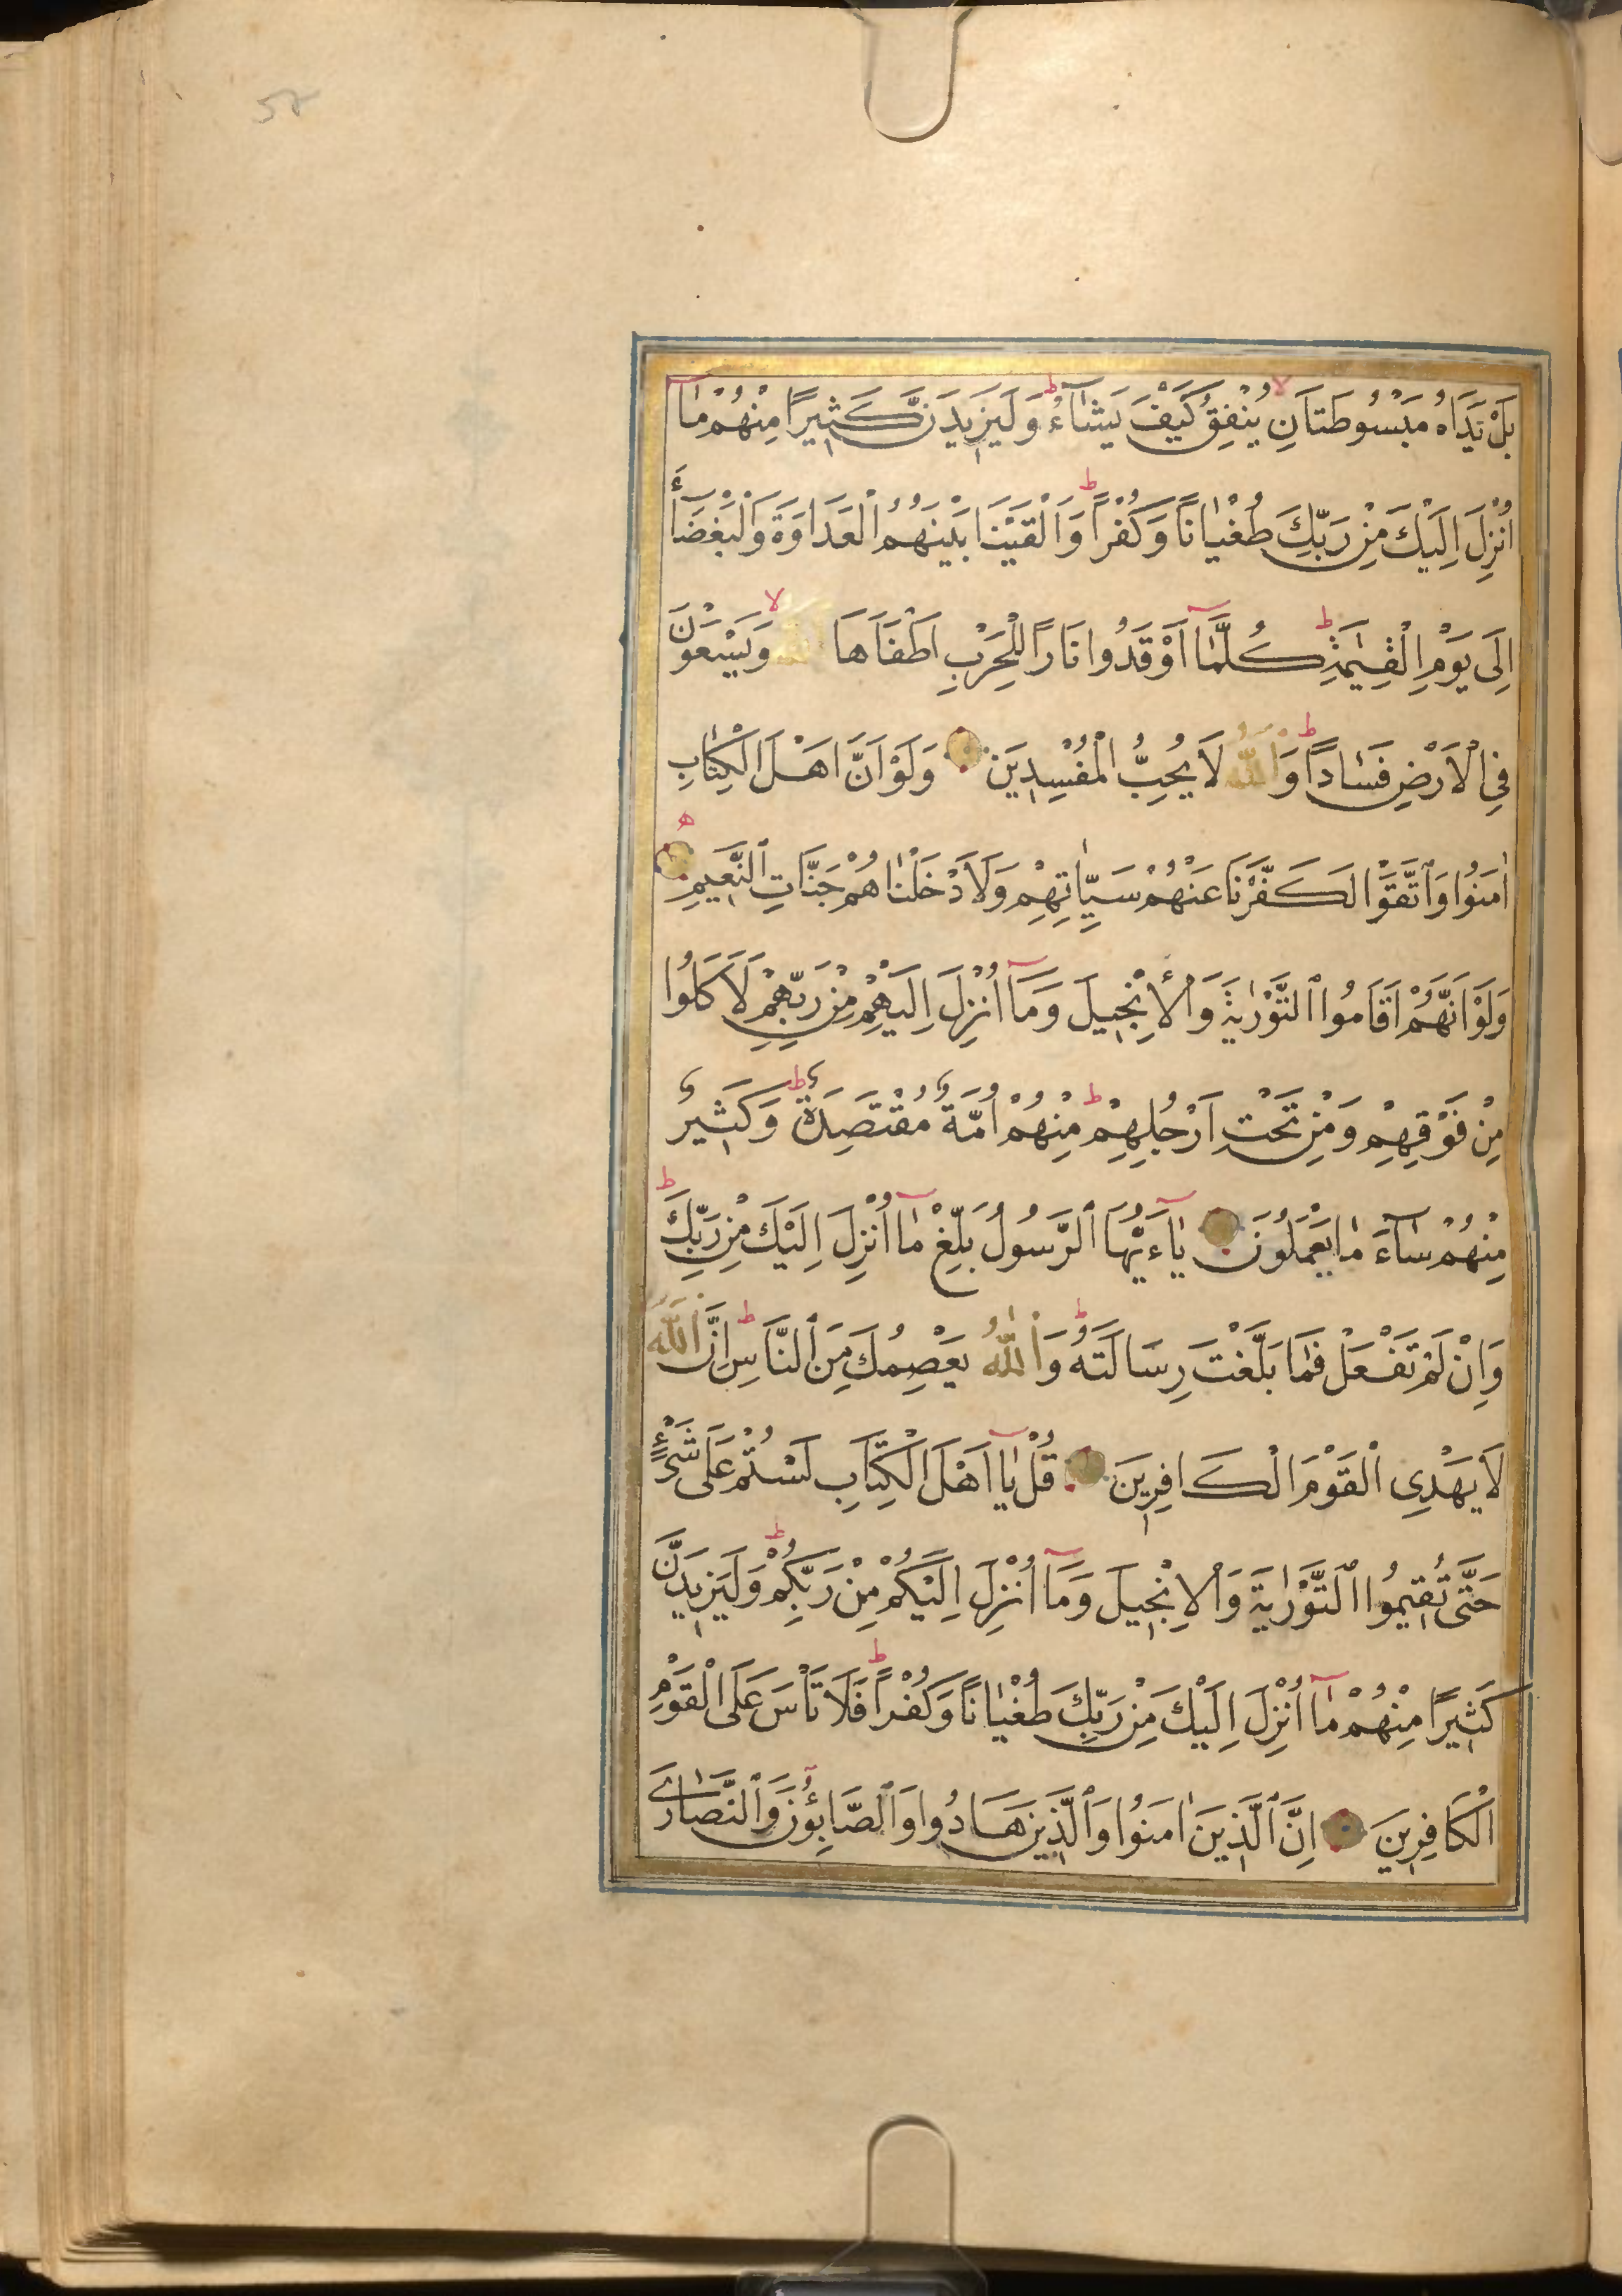 58
بَلْ يَدَاهُ مَبْسُوطَتَانِ يُنْفِقُ كَيْفَ يَشَآءُ ط وَلَيَزِيدَنَّ كَثِيرًا مِنْهُمْ مَآ
اُنْزِلَ اِلَيْكَ مِنْ رَبِّكَ طُغْيَانًا وَكُفْرًا ط وَاَلْقَيْنَا بَيْنَهُمُ الْعَدَاوَةَ وَالْبَغْضَآءَ
اِلَى يَوْمِ الْقِيٰمَةِ ط كُلَّمَآ اَوْقَدُوا نَارًا لِلْحَرْبِ اَطْفَاَهَا اللّٰهُ لا وَيَسْعَوْنَ
فِى الْاَرْضِ فَسَادًا ط وَاللّٰهُ لَا يُحِبُّ الْمُفْسِدِينَ وَلَوْ اَنَّ اَهْلَ الْكِتَابِ
اٰمَنُوا وَاتَّقَوْا لَكَفَّرْنَا عَنْهُمْ سَيِّاٰتِهِمْ وَلَاَدْخَلْنَاهُمْ جَنَّاتِ النَّعِيمِ ه
وَلَوْ اَنَّهُمْ اَقَامُوا التَّوْرٰيةَ وَالْاِنْجِيلَ وَمَآ اُنْزِلَ اِلَيْهِمْ مِنْ رَبِّهِمْ لَاَكَلُوا
مِنْ فَوْقِهِمْ وَمِنْ تَحْتِ اَرْجُلِهِمْ ط مِنْهُمْ اُمَّةٌ مُقْتَصِدَةٌ ط وَكَثِيرٌ
مِنْهُمْ سَآءَ مَا يَعْمَلُونَ يَآءَيُّهَا الرَّسُولُ بَلِّغْ مَآ اُنْزِلَ اِلَيْكَ مِنْ رَبِّكَ ط
وَاِنْ لَمْ تَفْعَلْ فَمَا بَلَّغْتَ رِسَالَتَهُ ط وَاللّٰهُ يَعْصِمُكَ مِنَ النَّاسِ ط اِنَّ اللّٰهَ
لَا يَهْدِى الْقَوْمَ الْكَافِرِينَ قُلْ يَآ اَهْلَ الْكِتَابِ لَسْتُمْ عَلَى شَىْءٍ
حَتَّى تُقِيمُوا التَّوْرٰيةَ وَالْاِنْجِيلَ وَمَآ اُنْزِلَ اِلَيْكُمْ مِنْ رَبِّكُمْ ط وَلَيَزِيدَنَّ
كَثِيرًا مِنْهُمْ مَآ اُنْزِلَ اِلَيْكَ مِنْ رَبِّكَ طُغْيَانًا وَكُفْرًا ط فَلَا تَاْسَ عَلَى الْقَوْمِ
الْكَافِرِينَ اِنَّ الَّذِينَ اٰمَنُوا وَالَّذِينَ هَادُوا وَالصَّابِئُونَ وَالنَّصَارَى